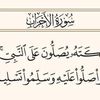 سُورَةُ الأَحْزَابِ
كَتَهُ يُصَلُّونَ عَلَى ٱلنَّبِيِّ
صَلُّوا عَلَيْهِ وَسَلِّمُوا تَسْلِي